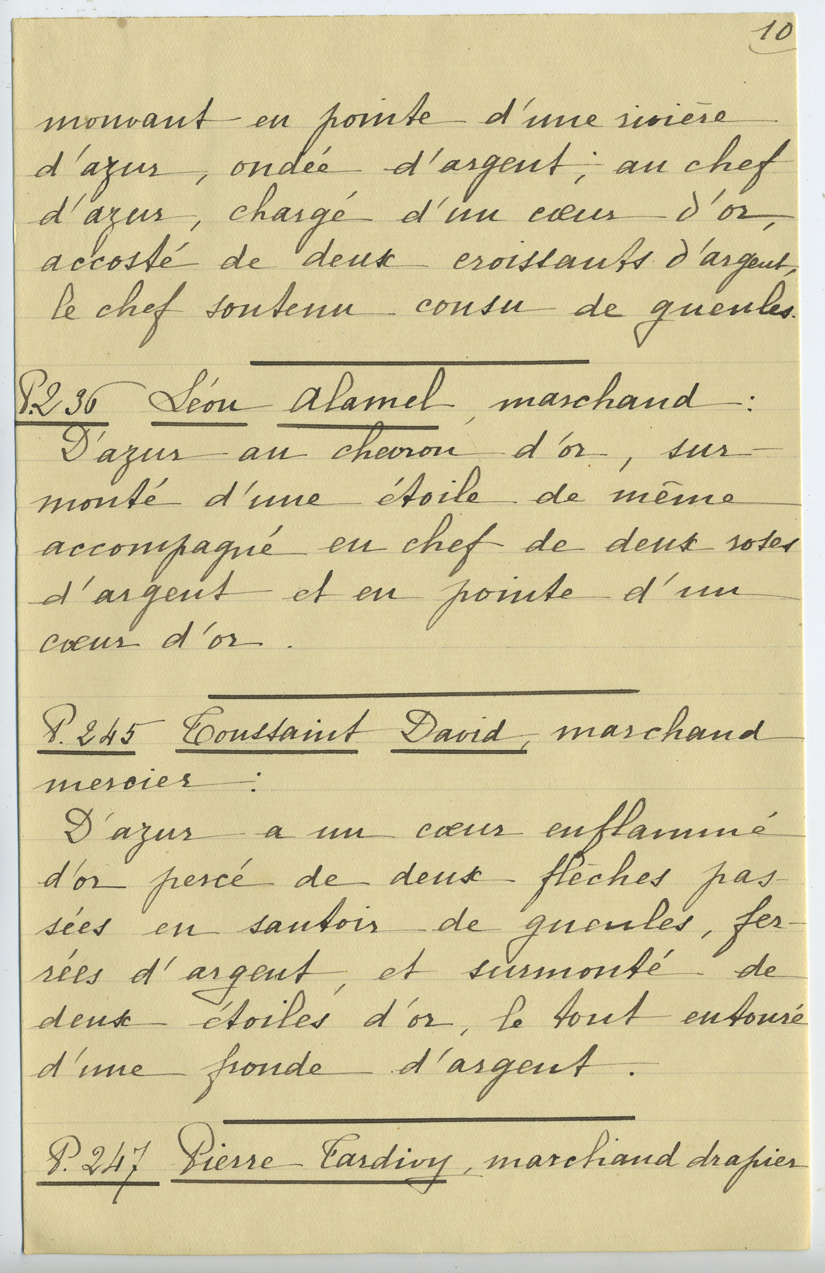 10
mouvant en pointe d'une rivière
d'azur, ondée d'argent; au chef
d'azur, chargé d'un cœur d'or,
accosté de deux croissants d'argent,
le chef soutenu cousu de gueules.
P.236 Léon Alamel, marchand :
D'azur au chevron d'or, sur-
monté d'une étoile de même
accompagné en chef de deux roses
d'argent et en pointe d'un
cœur d'or.
P. 245 Toussaint David, marchand
mercier :
D'azur a un cœur enflammé
d'or percé de deux flèches pas-
sées en sautoir de gueules, fer-
rées d'argent, et surmonté de
deux étoiles d'or, le tout entouré
d'une fronde d'argent.
P. 247 Pierre Tardivy, marchand drapier